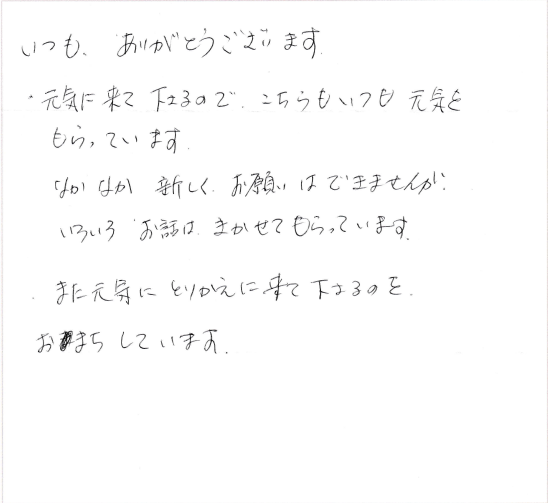 いつも、ありがとうございます
・元気に来て下さるので、こちらもいつも元気を
もらっています.
なかなか 新しく お願いはできませんが、
いろいろ お話は きかせてもらっています.
・また元気に とりかえに来て下さるのを、
おまちしています.